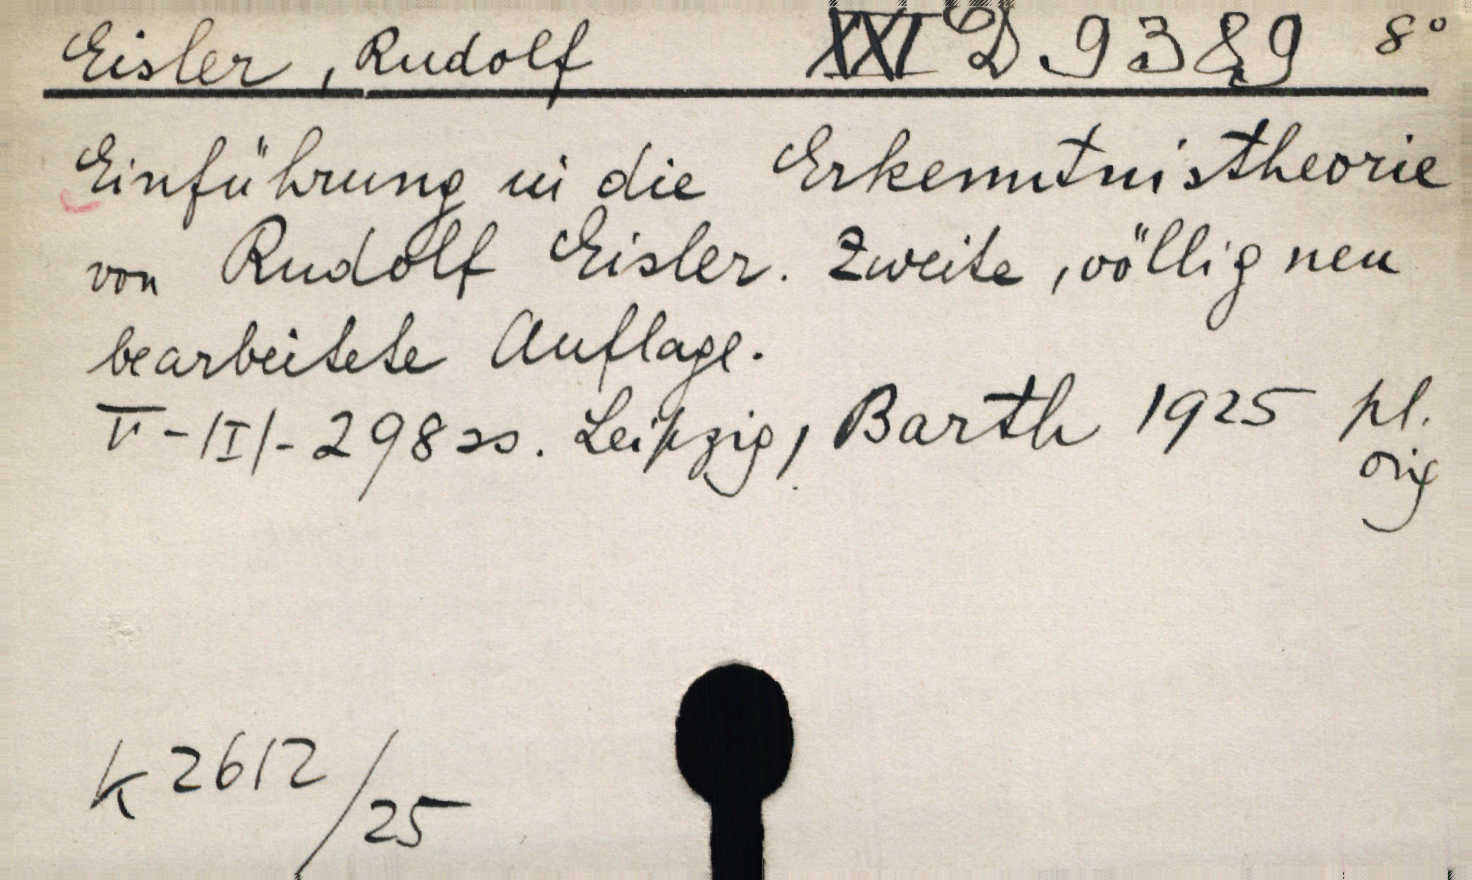 Eisler, Rudolf XXI D 9389 8°
Einführung in die Erkenntnistheorie
von Rudolf Eisler. Zweite, völlig neu
bearbeitete Auflage.
V-/I/-298 ss. Leipzig, Barth 1925 pl.
orig
K 2612/25